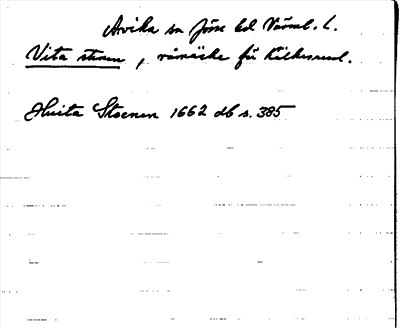 Arvika sn Jöse hd Värml. l.
Vita stenen, råmärke för Kilkesrud.
Huita Steenen 1662 db s. 385